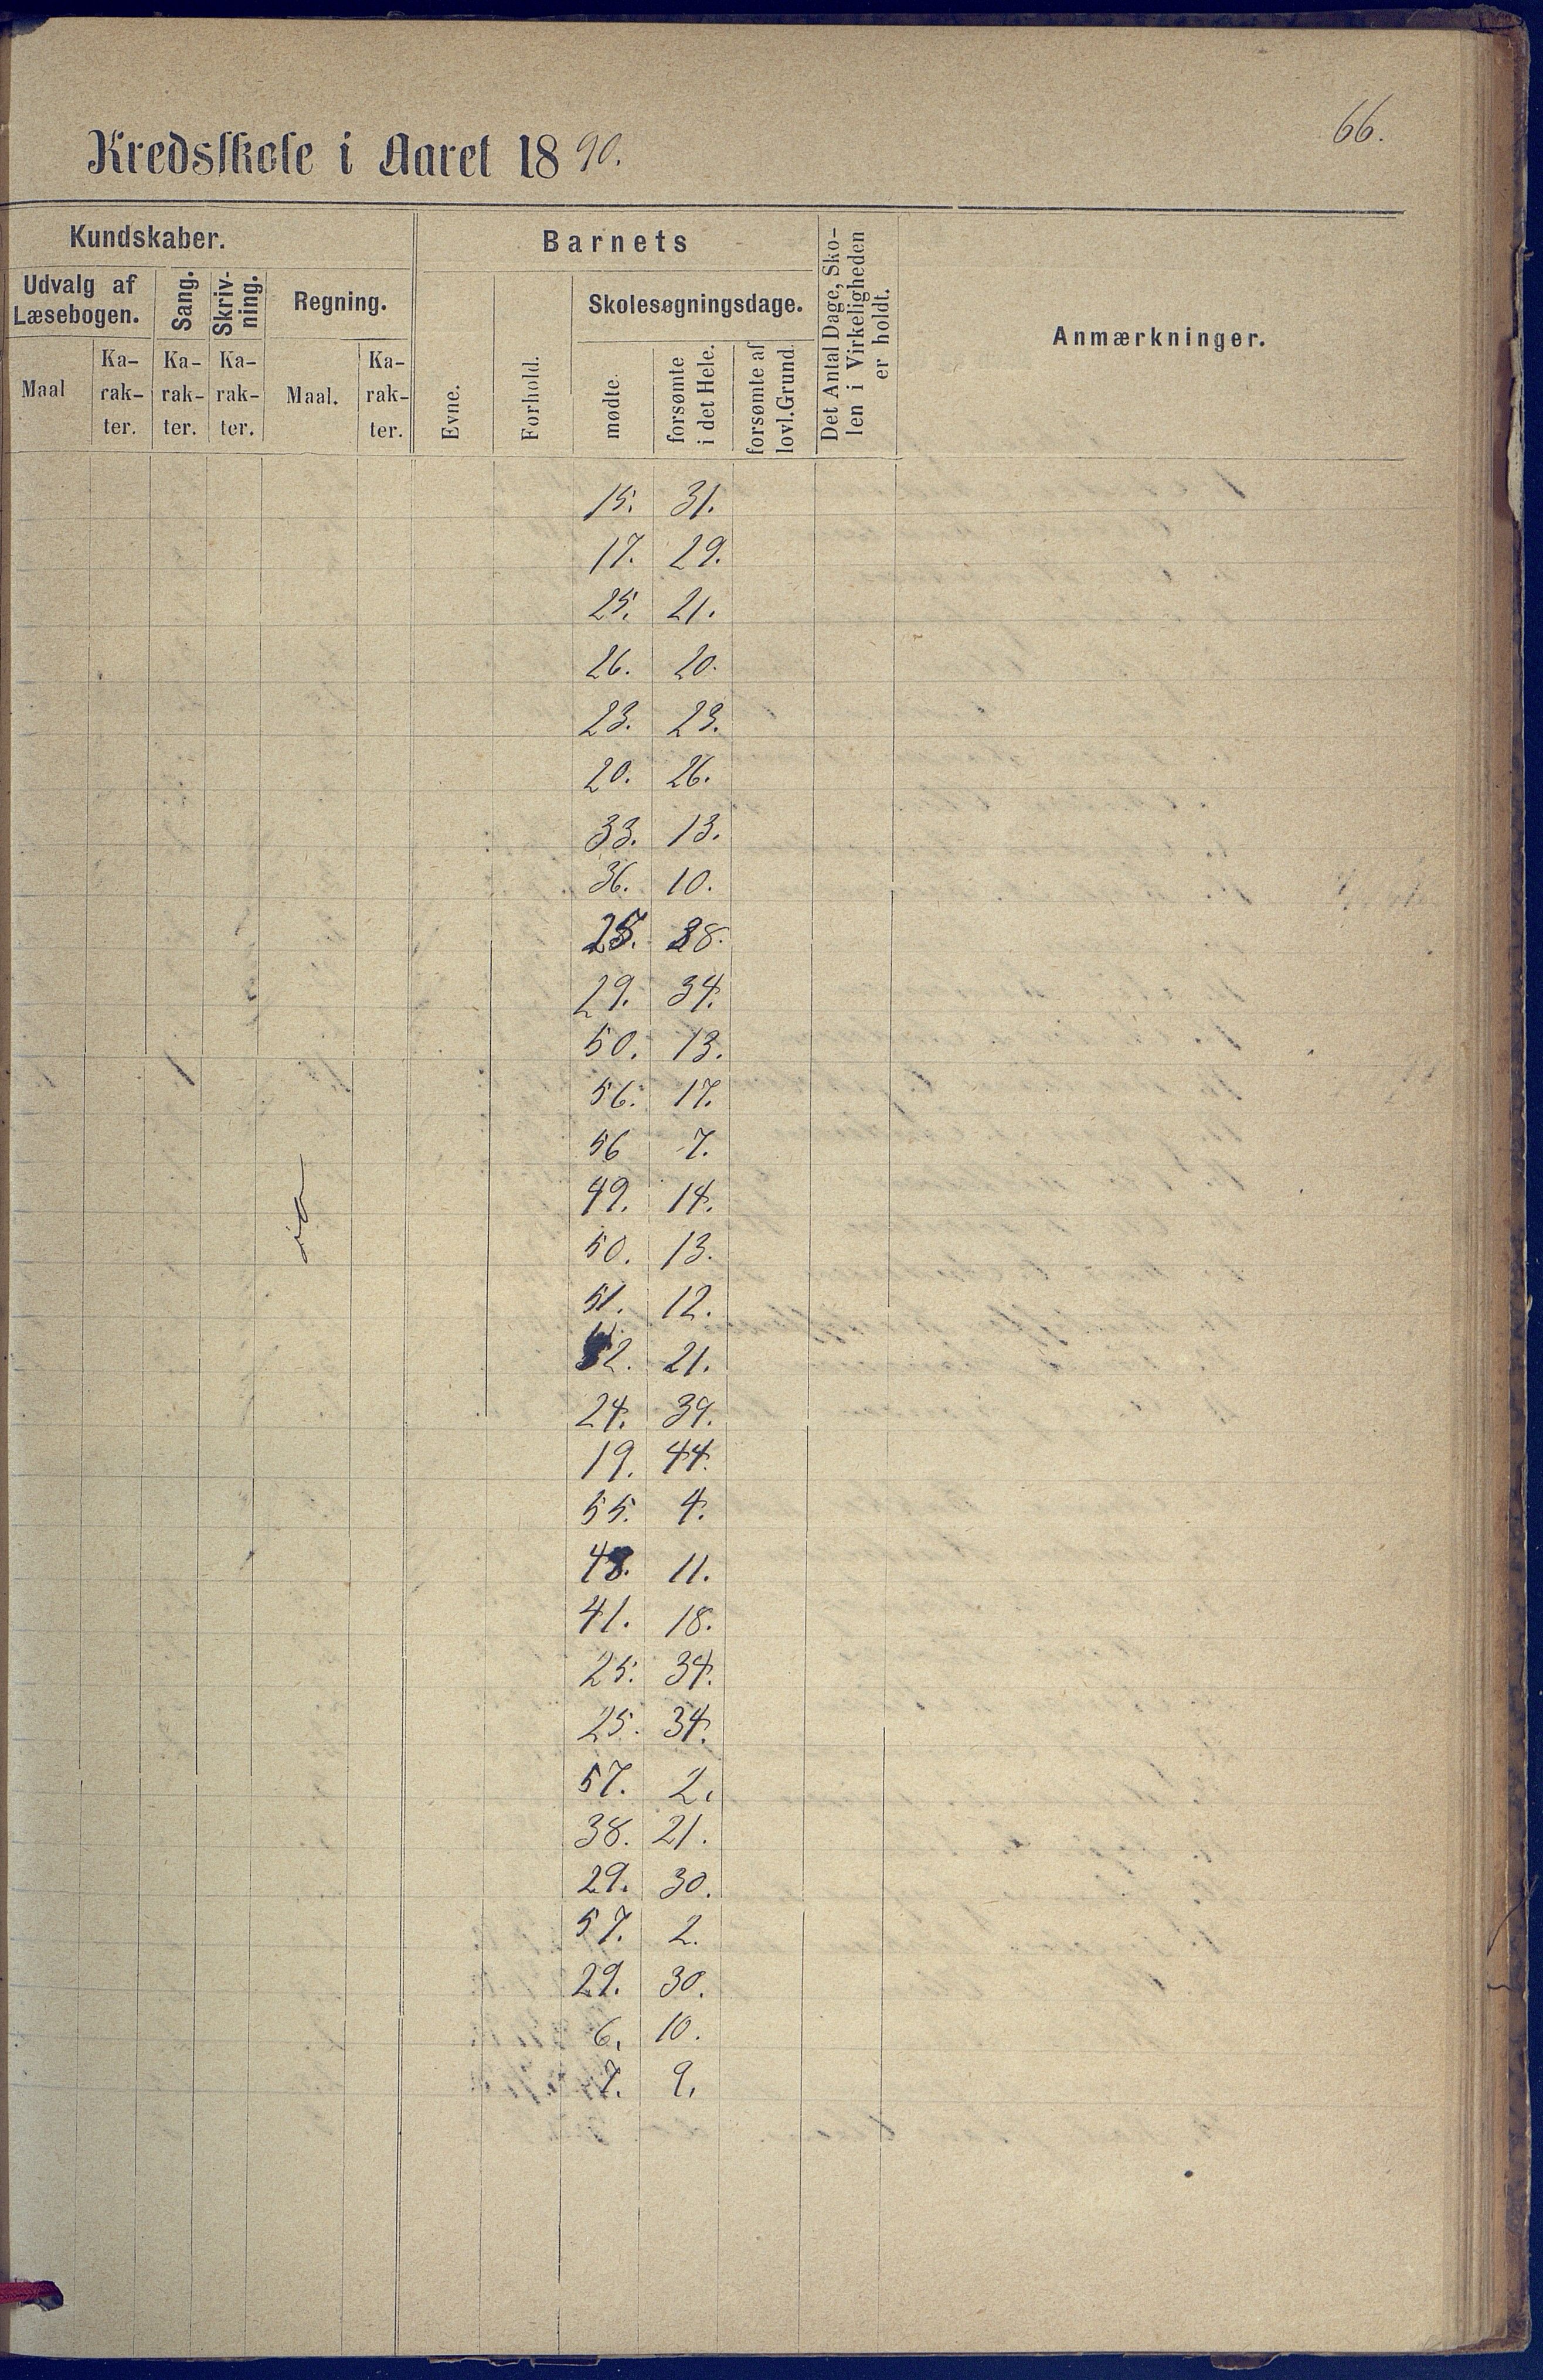 66.
Kredsskole i Aaret 1890.
Kundskaber.
Barnets
Det Antal Dage, Sko-
len i Virkeligheden
er holdt.
Anmærkninger.
Udvalg af
Læsebogen.
Sang.
Skriv-
ning.
Regning.
Evne.
Forhold.
Skolesøgningsdage.
Maal
Ka-
rak-
ter.
Ka-
rak-
ter.
Ka-
rak-
ter.
Maal.
Ka-
rak-
ter.
mødte
forsømte
i det Hele.
forsømte af
lovl. Grund.
15. 31.
17. 29.
25. 21.
26. 20.
23. 23.
20. 26.
33. 13.
36. 10.
25. 38.
29. 34.
50. 13.
56. 17.
56 7.
49. 14.
50. 13.
51. 12.
21.
24. 39.
19. 44.
55. 4.
48. 11.
41. 18.
25. 34.
25. 34.
57. 2.
38. 21.
29. 30.
57. 2.
29. 30.
6. 10.
7. 9.